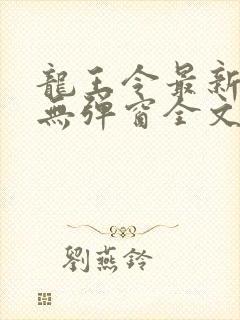 龍王令最新
無彈窗全文
劉燕鈴